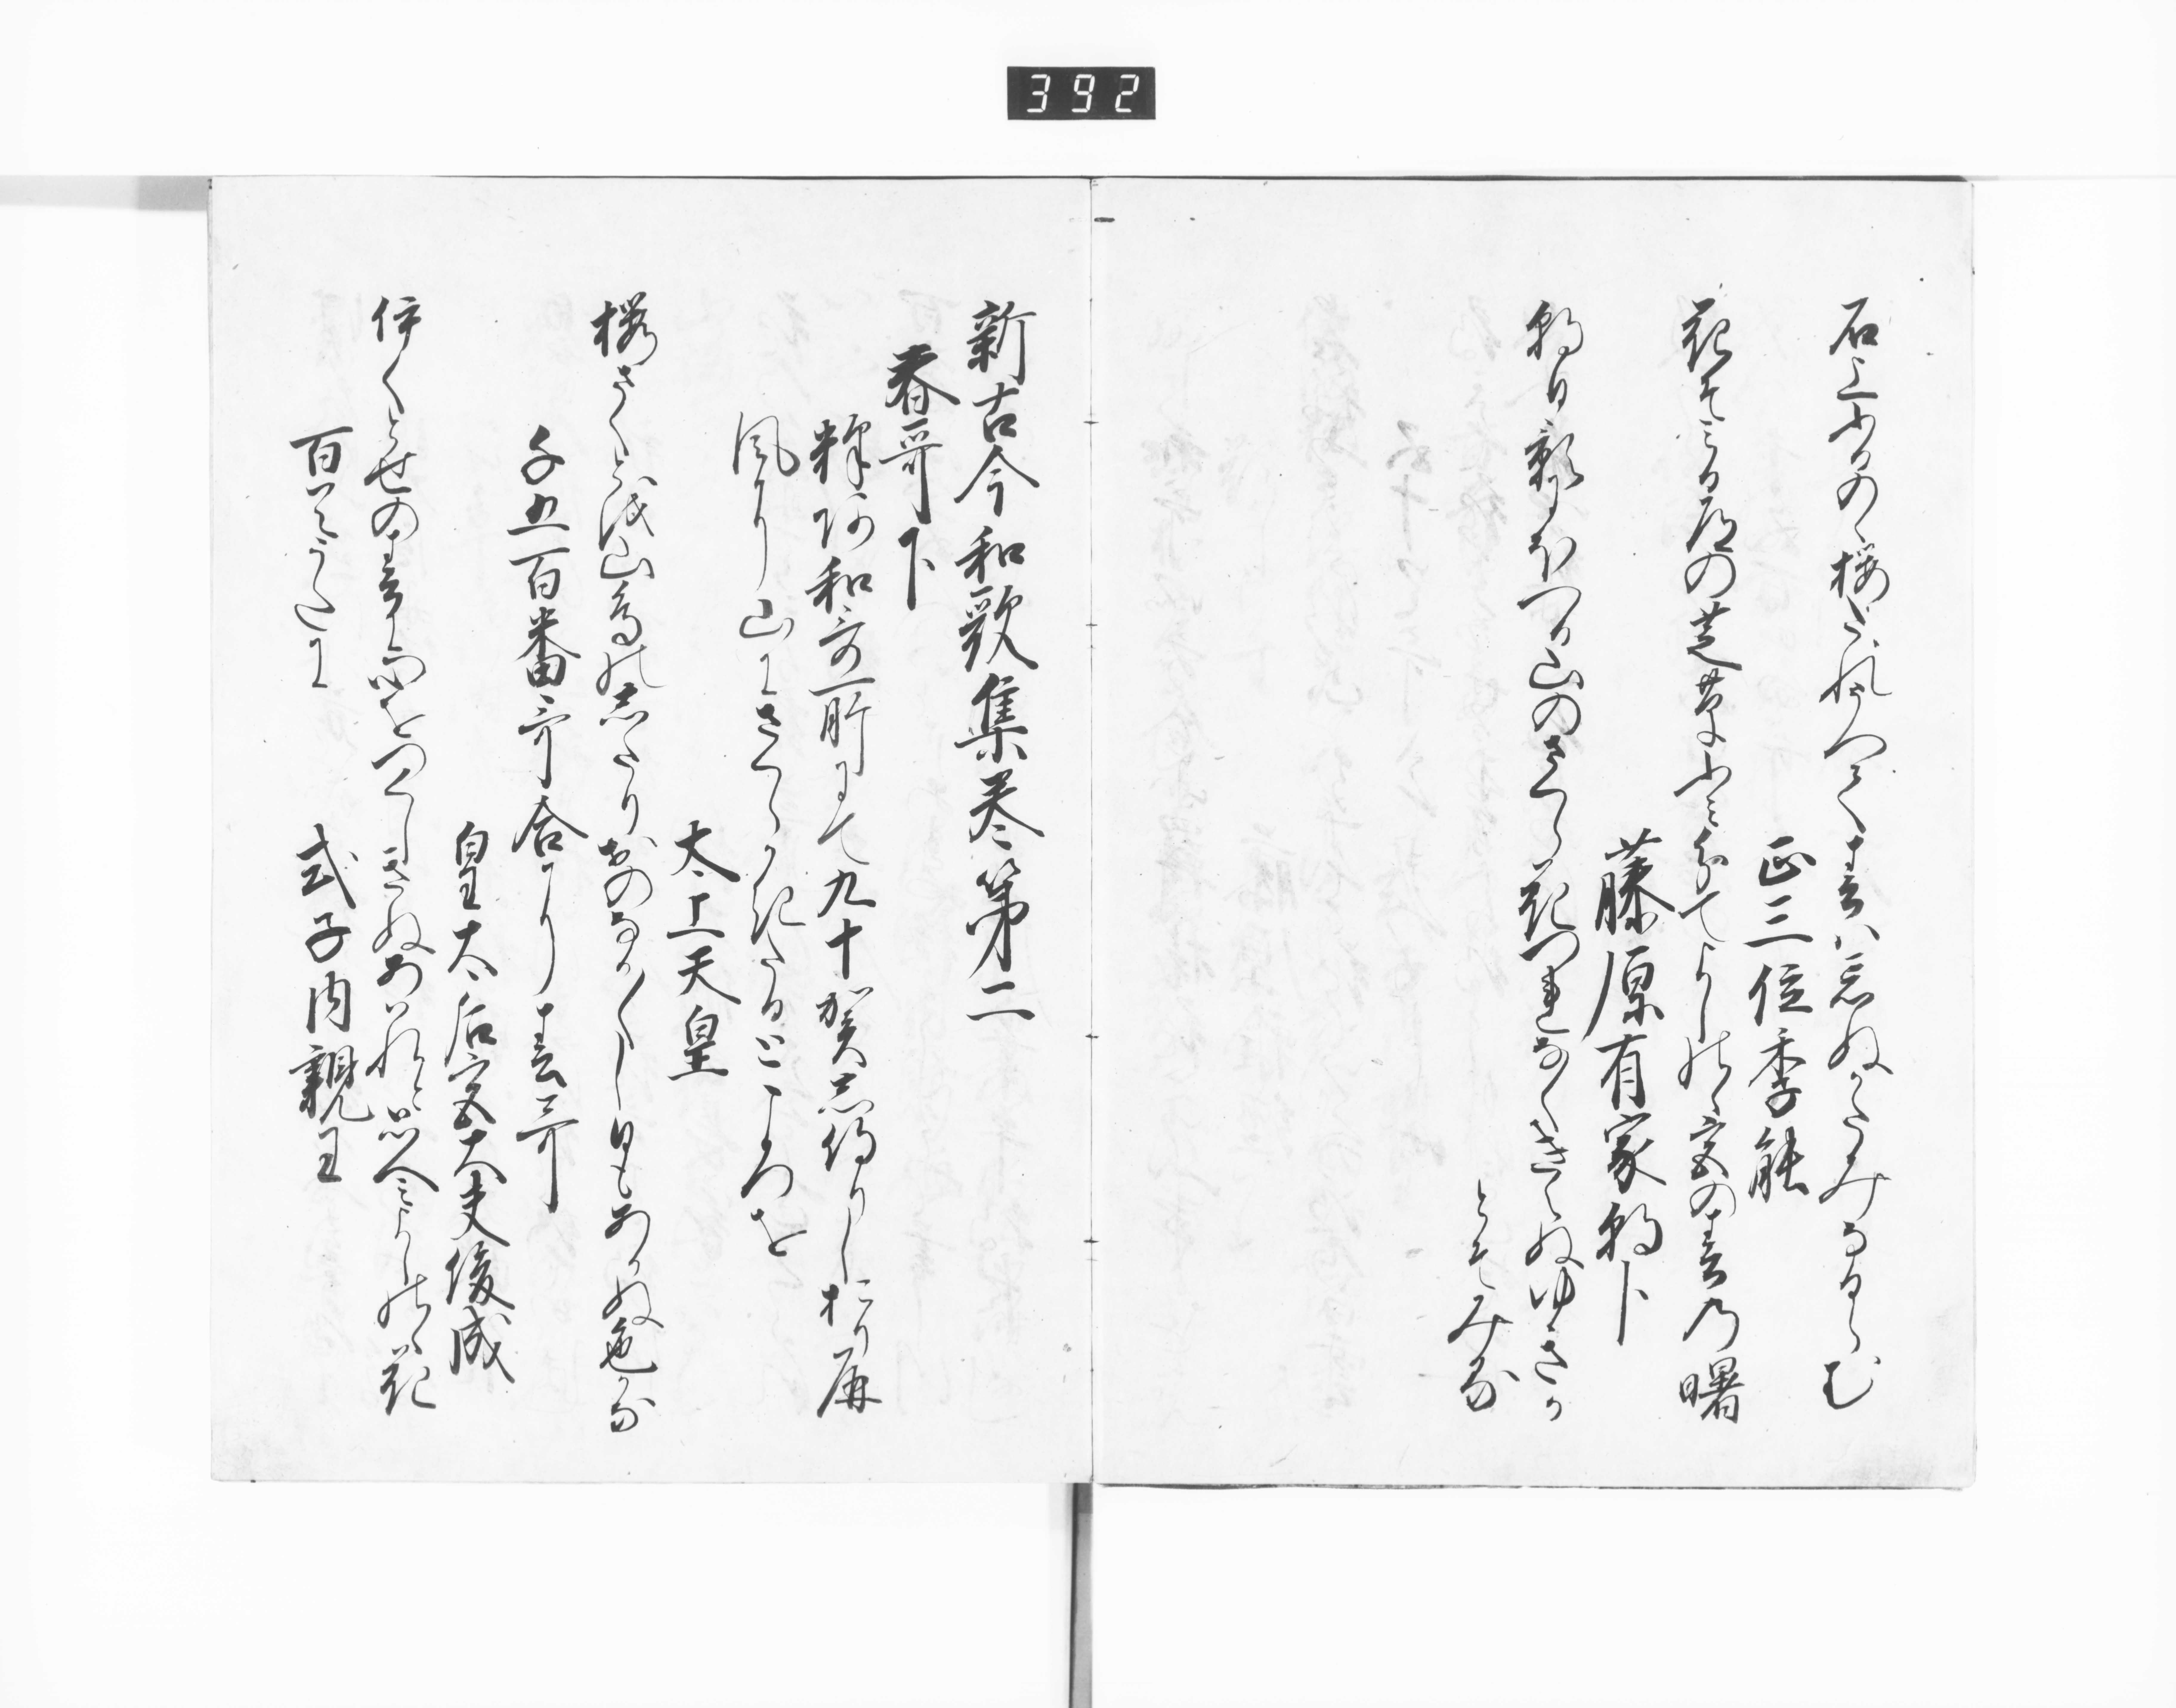 392
石上ふるのゝ桜たれうへて春ハ忘ぬかたみなるらむ
正三位季能
花そミる道の芝草ふミ分てよし野ゝ宮の春乃曙
藤原有家朝臣
朝日影にほへる山のさくら花つれなくきえぬゆきか
とそみる
新古今和歌集巻第二
春哥下
釈阿和哥所にて九十賀し侍りしおり屏
風に山にさくらかきたるところを
太上天皇
桜さくとを山鳥のしたりおのなか〱し日もあかぬ色かな
千五百番哥合に春哥
皇太后宮大夫俊成
伊くとせの春に心をつくしきぬあハれと思へミよし野ゝ花
百首哥に
式子内親王